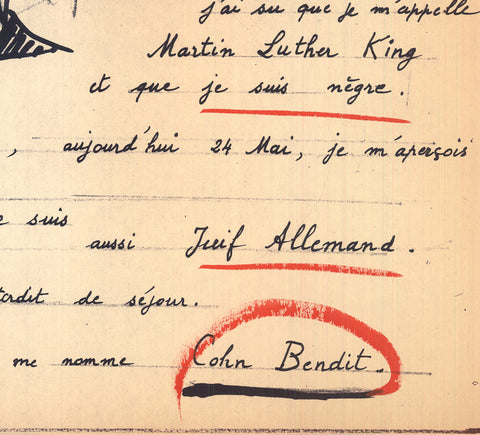 j'ai su que je m'appelle
Martin Luther King
et que je suis nègre.
, aujourd'hui 24 Mai, je m'aperçois
suis
aussi Juif Allemand.
de séjour.
me nomme Cohn Bendit.